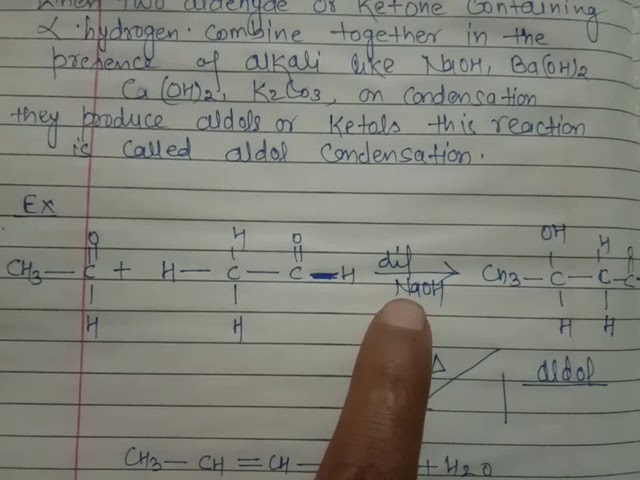 When two aldehyde or Ketone containing
α-hydrogen combine together in the
presence of alkali like NaOH, Ba(OH)2
Ca(OH)2, K2CO3, on condensation
they produce aldols or Ketols this reaction
is called aldol condensation.
Ex
O H O OH H O
CH3 — C + H — C — C — H dil NaOH CH3 — C — C — C
H H H H
Δ aldol
CH3 — CH = CH — + H2O